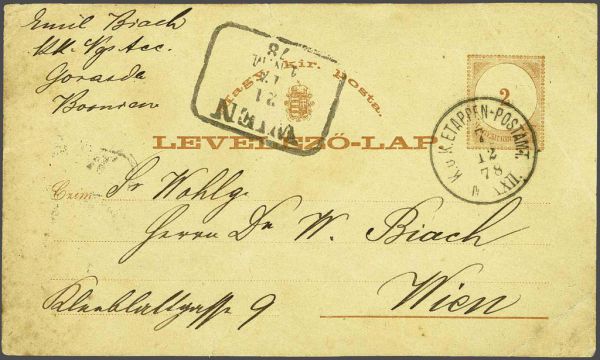 Emil Biach
KK. Vpstcc.
Gorazda
Bosnien
Magy. kir. posta.
2
LEVELEZŐ-LAP
WIEN
21
12
78
K.u.K. ETAPPEN-POSTAMT.
12
78
LXII.
Czim:
Sr Wohlg.
Herrn Dr. W. Biach
Wien
Kleeblattgasse 9